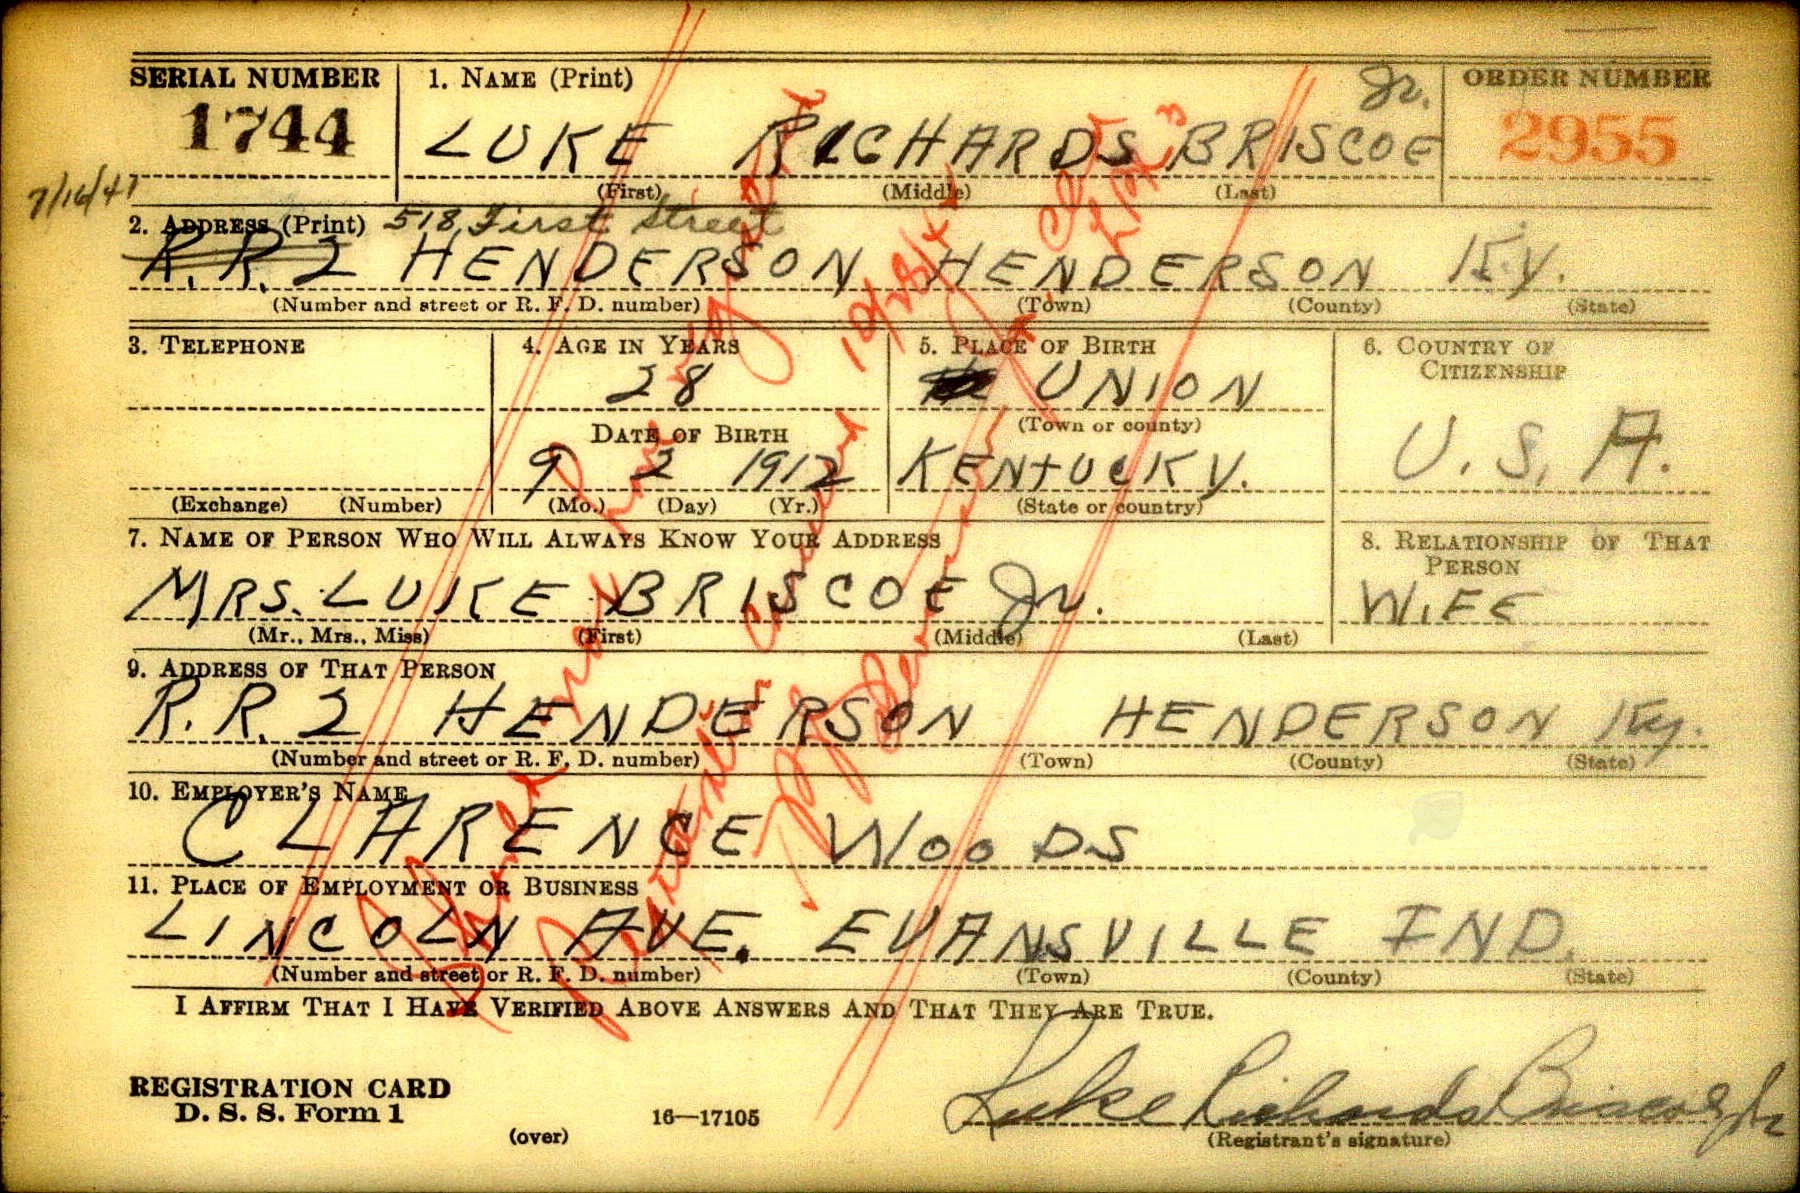 SERIAL NUMBER
1744
1. NAME (Print)
Jr.
LUKE RICHARDS BRISCOE
(First) (Middle) (Last)
ORDER NUMBER
2955
7/16/41
2. ADDRESS (Print) 518 First Street
R. R. 2 HENDERSON HENDERSON Ky.
(Number and street or R. F. D. number) (Town) (County) (State)
3. TELEPHONE
(Exchange) (Number)
4. AGE IN YEARS
28
DATE OF BIRTH
9 2 1912
(Mo.) (Day) (Yr.)
5. PLACE OF BIRTH
UNION
(Town or county)
KENTUCKY.
(State or country)
6. COUNTRY OF
CITIZENSHIP
U. S. A.
7. NAME OF PERSON WHO WILL ALWAYS KNOW YOUR ADDRESS
MRS. LUKE BRISCOE Jr.
(Mr., Mrs., Miss) (First) (Middle) (Last)
8. RELATIONSHIP OF THAT
PERSON
WIFE
9. ADDRESS OF THAT PERSON
R. R. 2 HENDERSON HENDERSON Ky.
(Number and street or R. F. D. number) (Town) (County) (State)
10. EMPLOYER'S NAME
CLARENCE WOODS
11. PLACE OF EMPLOYMENT OR BUSINESS
LINCOLN AVE. EVANSVILLE IND.
(Number and street or R. F. D. number) (Town) (County) (State)
I AFFIRM THAT I HAVE VERIFIED ABOVE ANSWERS AND THAT THEY ARE TRUE.
REGISTRATION CARD
D. S. S. Form 1
(over)
16—17105
Luke Richards Briscoe Jr
(Registrant's signature)